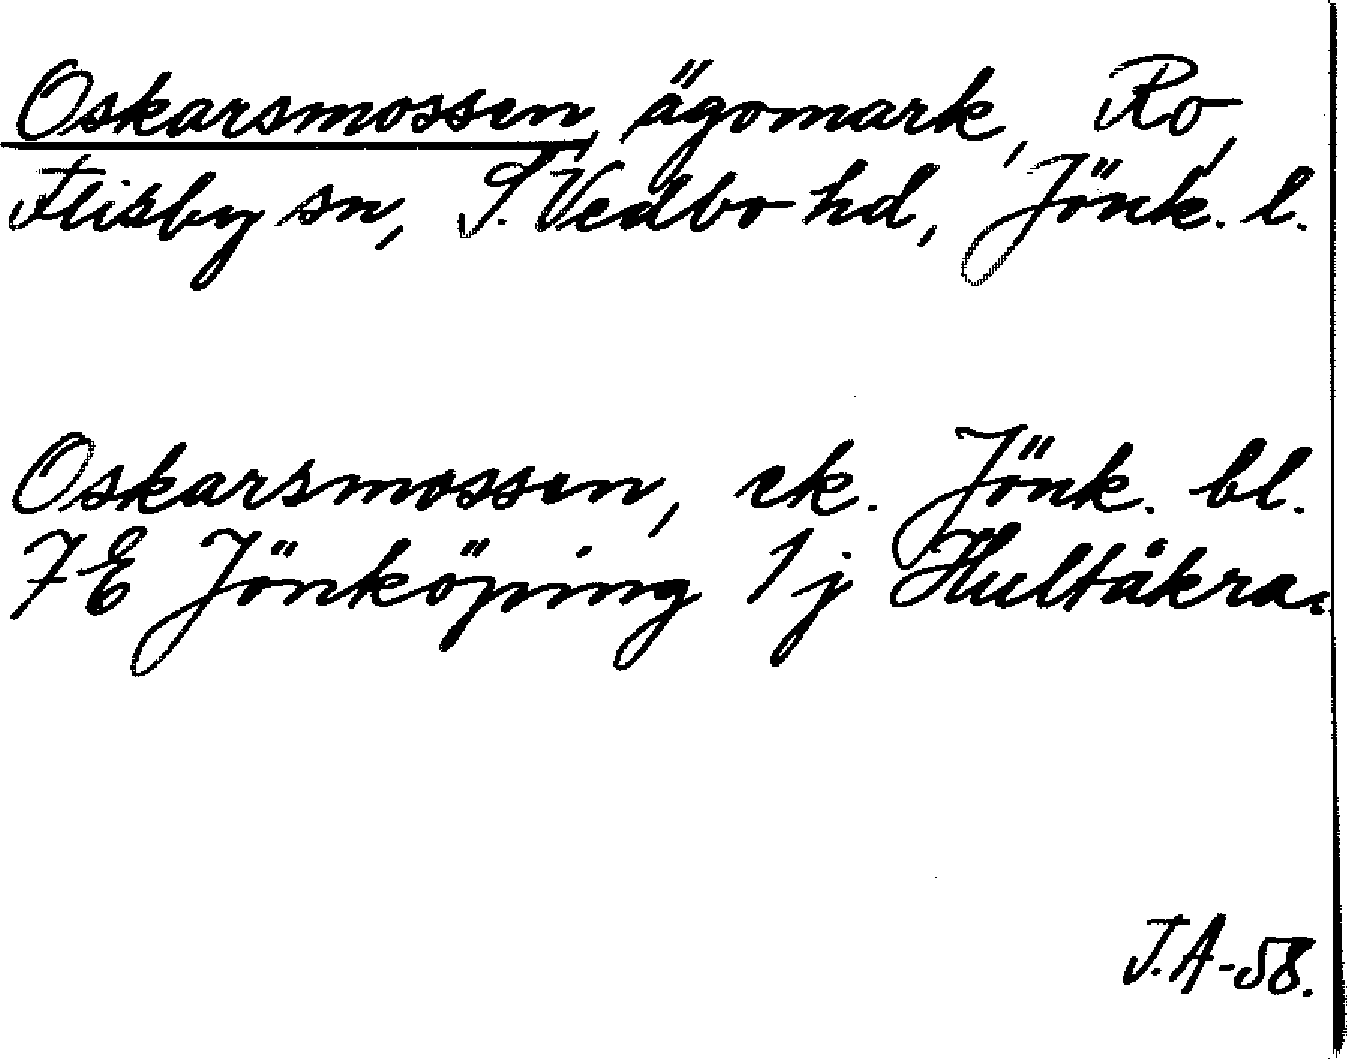 Oskarsmossen, ägomark, Ro,
Flisby sn, S. Vedbo hd, Jönk. l.
Oskarsmossen, ek. Jönk. bl.
7E Jönköping 1j Hultåkra.
J.A-58.